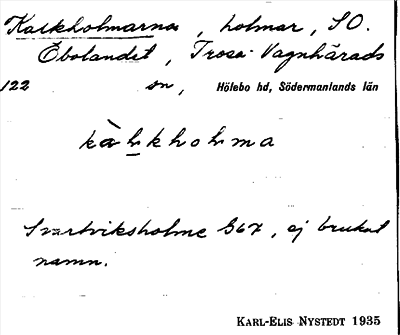 Kalkholmarna, holmar, SO.
Ebolandet, Trosa-Vagnhärads
122 sn, Hölebo hd, Södermanlands län
kàlkholma
Svartviksholme G67, ej brukat
namn.
KARL-ELIS NYSTEDT 1935